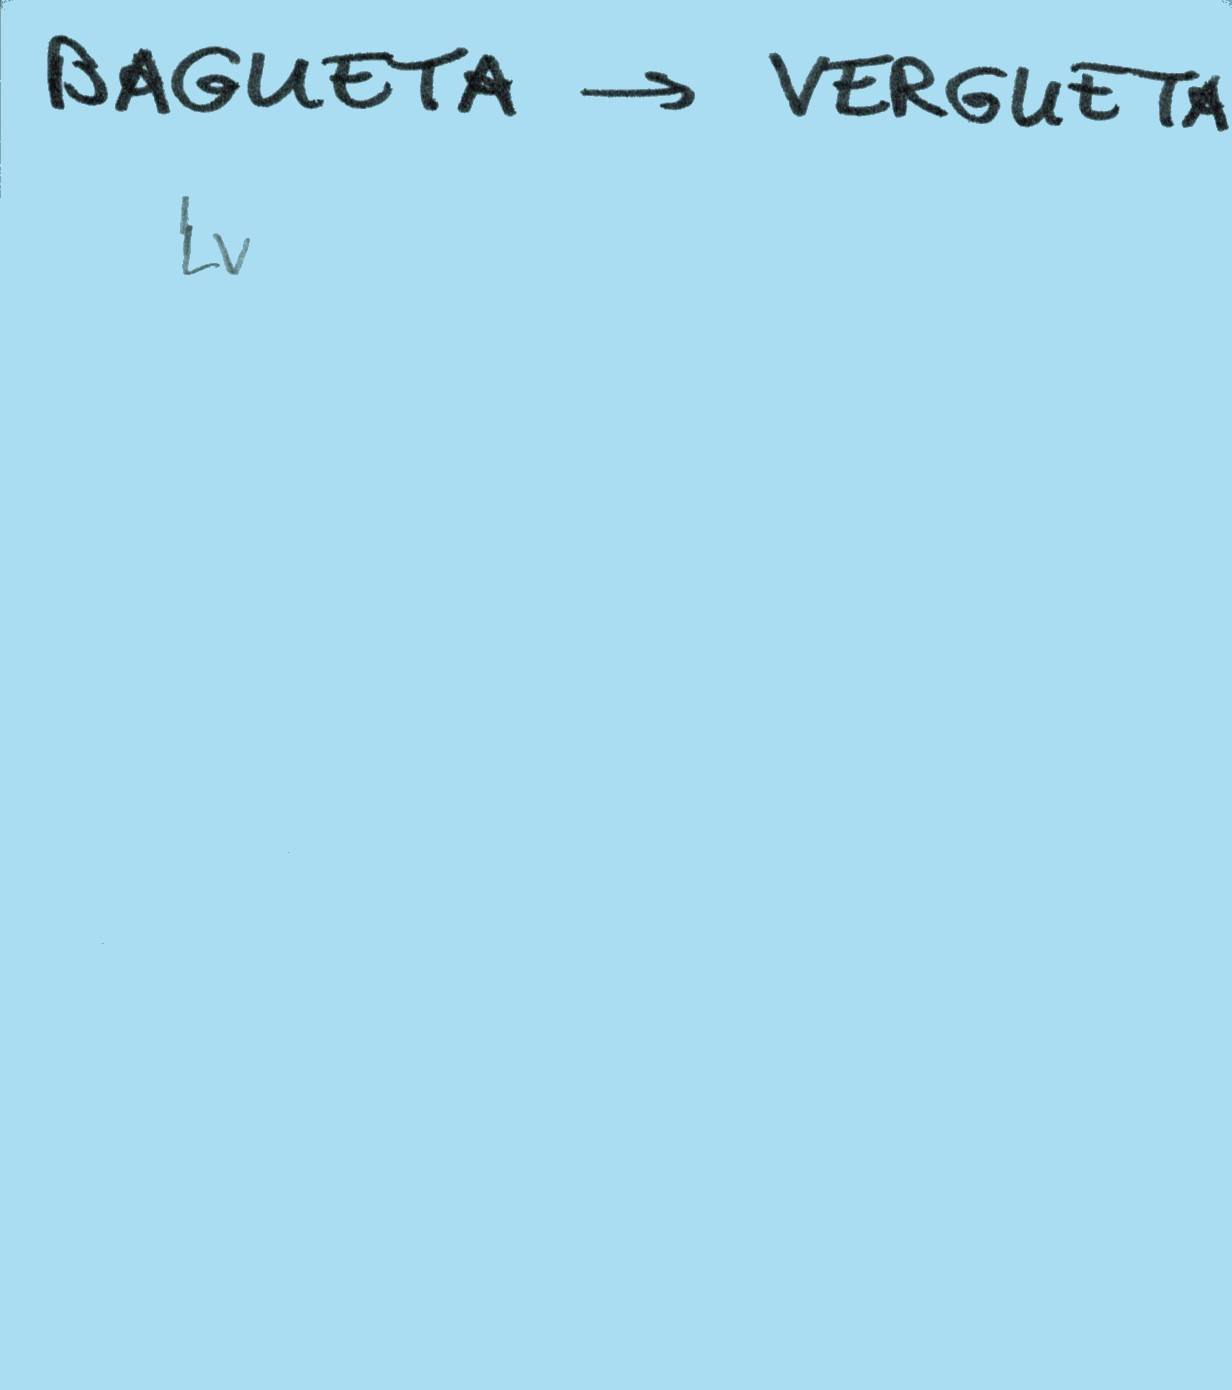 BAGUETA → VERGUETA
Lv